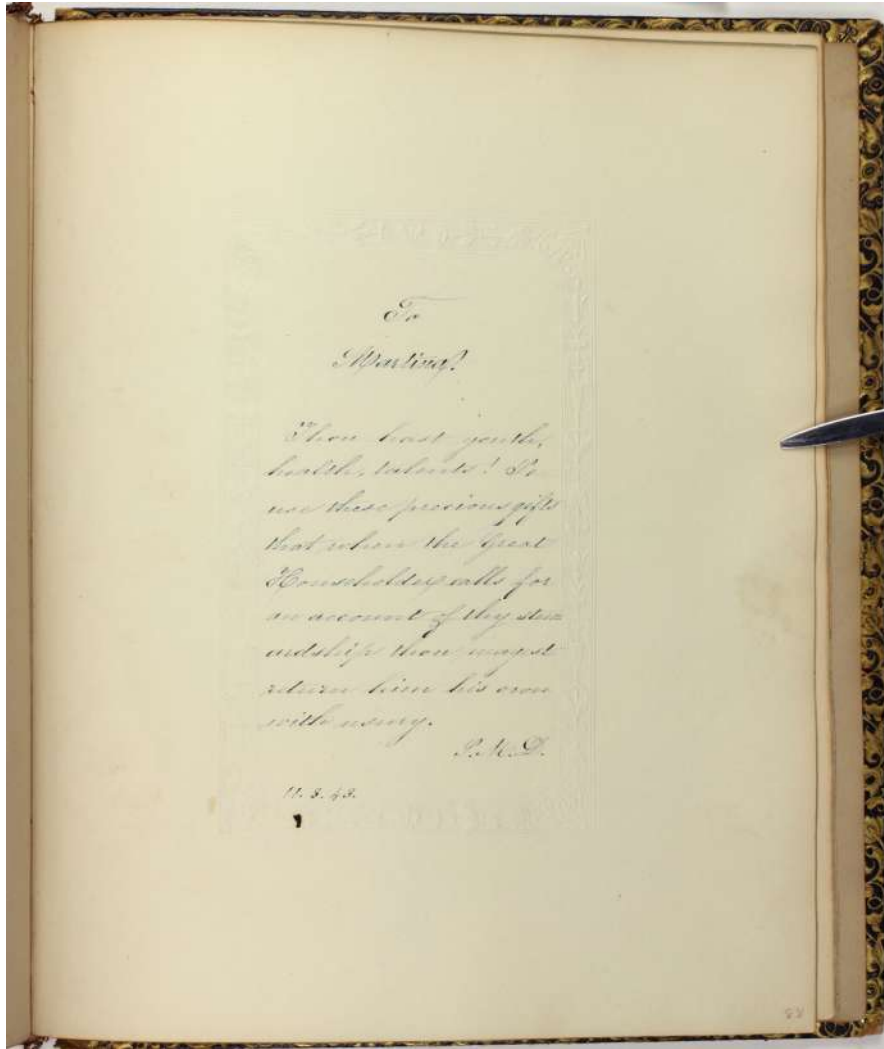 To
Martina!
Thou hast youth,
health, talents! So
use these precious gifts
that when the Great
Householder calls for
an account of thy stew=
ardship thou mayst
return him his own
with usury.
S. M. D.
11. 3. 43.
88